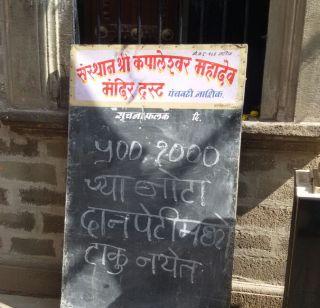 संस्थान श्री कपालेश्वर महादेव
मंदिर ट्रस्ट पंचवटी नाशिक.
सूचना फलक दि.
५००, १०००
च्या नोटा
दानपेटीमध्ये
टाकु नयेत